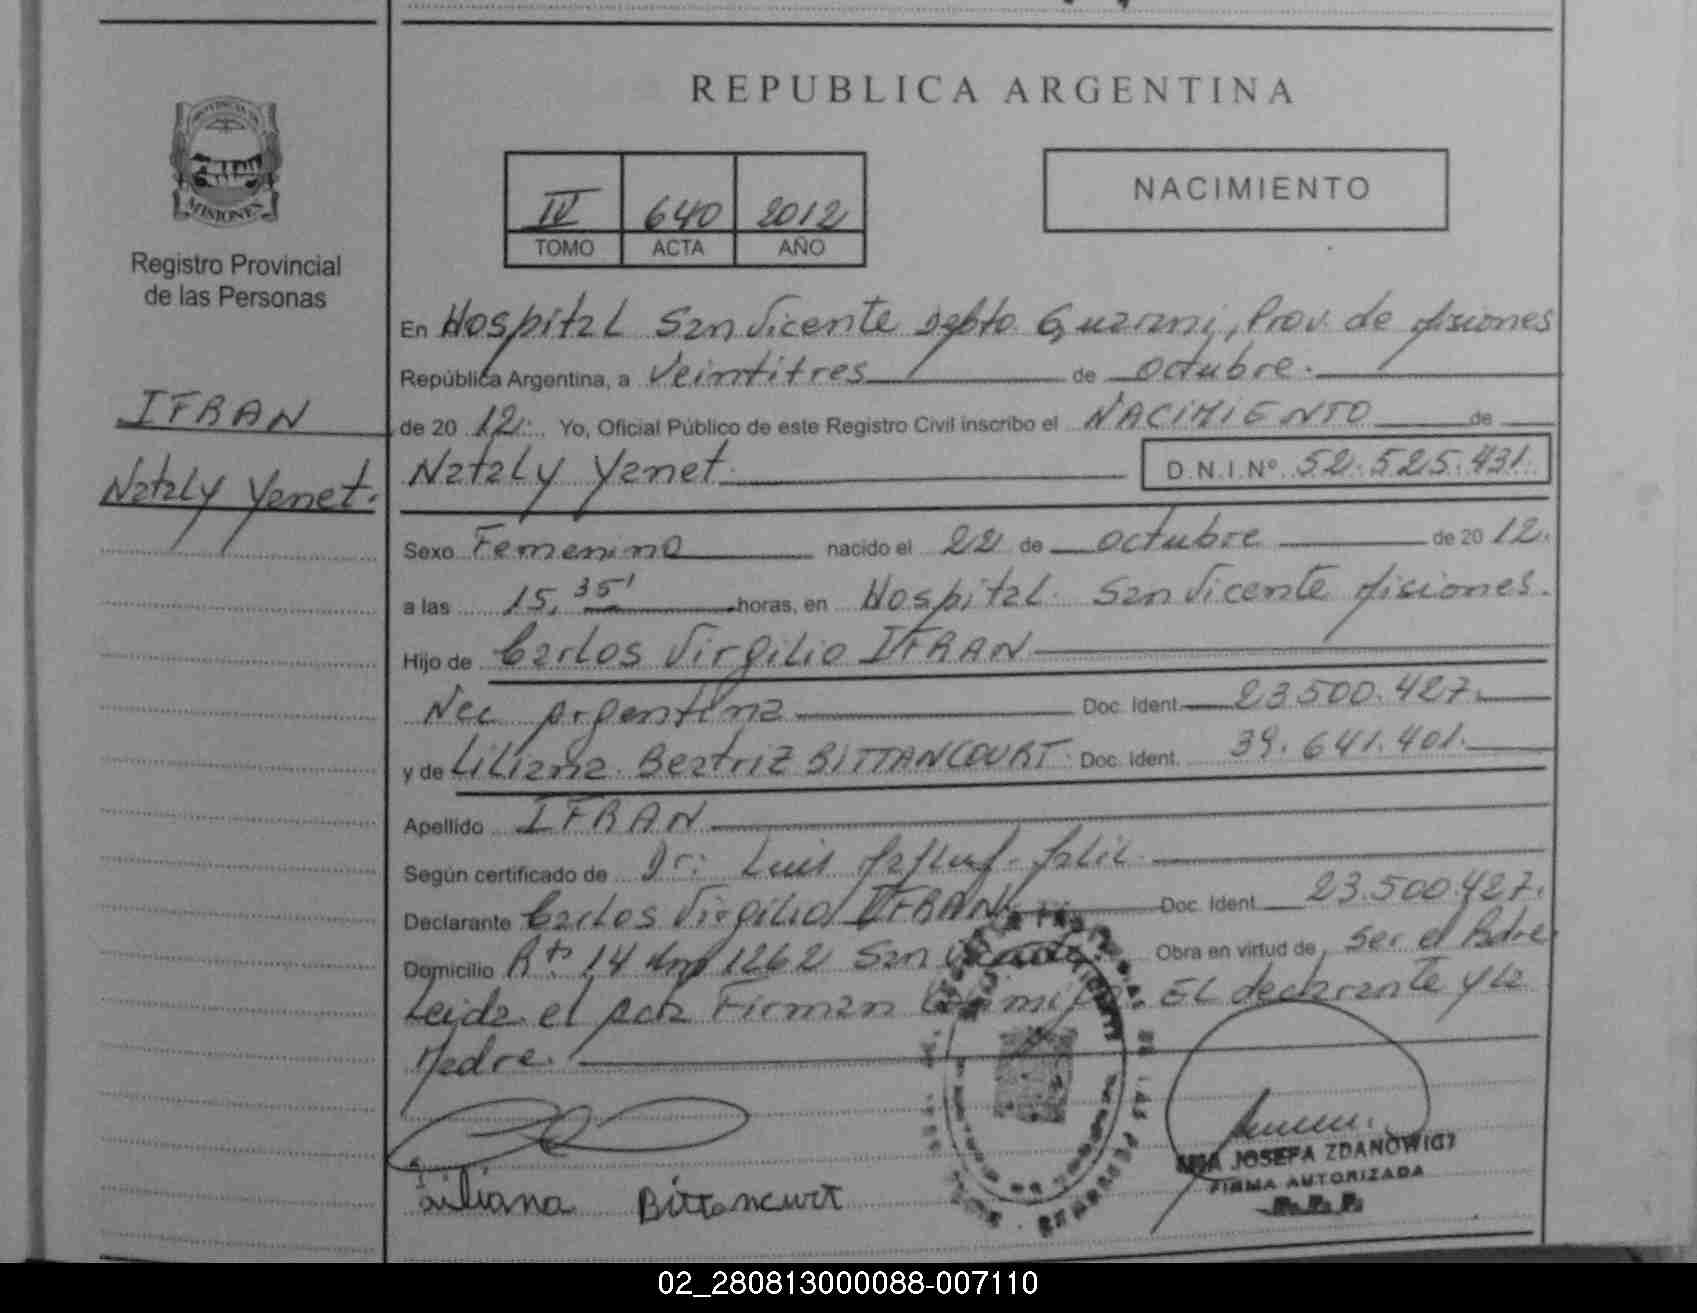 REPUBLICA ARGENTINA
PROVINCIA DE
MISIONES
Registro Provincial
de las Personas
IV 640 2012
TOMO ACTA AÑO
NACIMIENTO
En Hospital San Vicente Dpto Guarani, Prov. de Misiones
República Argentina, a Veintitres de octubre.
de 20 12. Yo, Oficial Público de este Registro Civil inscribo el NACIMIENTO de
IFRAN
Nataly Yanet.
Nataly Yanet D.N.I.Nº 52.525.431.
Sexo Femenino nacido el 22 de octubre de 20 12.
a las 15,35' horas, en Hospital San Vicente Misiones.
Hijo de Carlos Virgilio IFRAN
Nac Argentina Doc. Ident. 23.500.427.
y de Liliana Beatriz BITTANCOURT Doc. Ident. 39.641.401.
Apellido IFRAN
Según certificado de Dr: Luis
Declarante Carlos Virgilio IFRAN Doc. Ident. 23.500.427.
Domicilio Rta 14 km 1262 San Vicente Obra en virtud de ser el Padre
Leida el acta Firman El declarante y la
Madre.
Liliana Bittancurt
JOSEFA ZDANOWICZ
FIRMA AUTORIZADA
R.P.P.
02_280813000088-007110